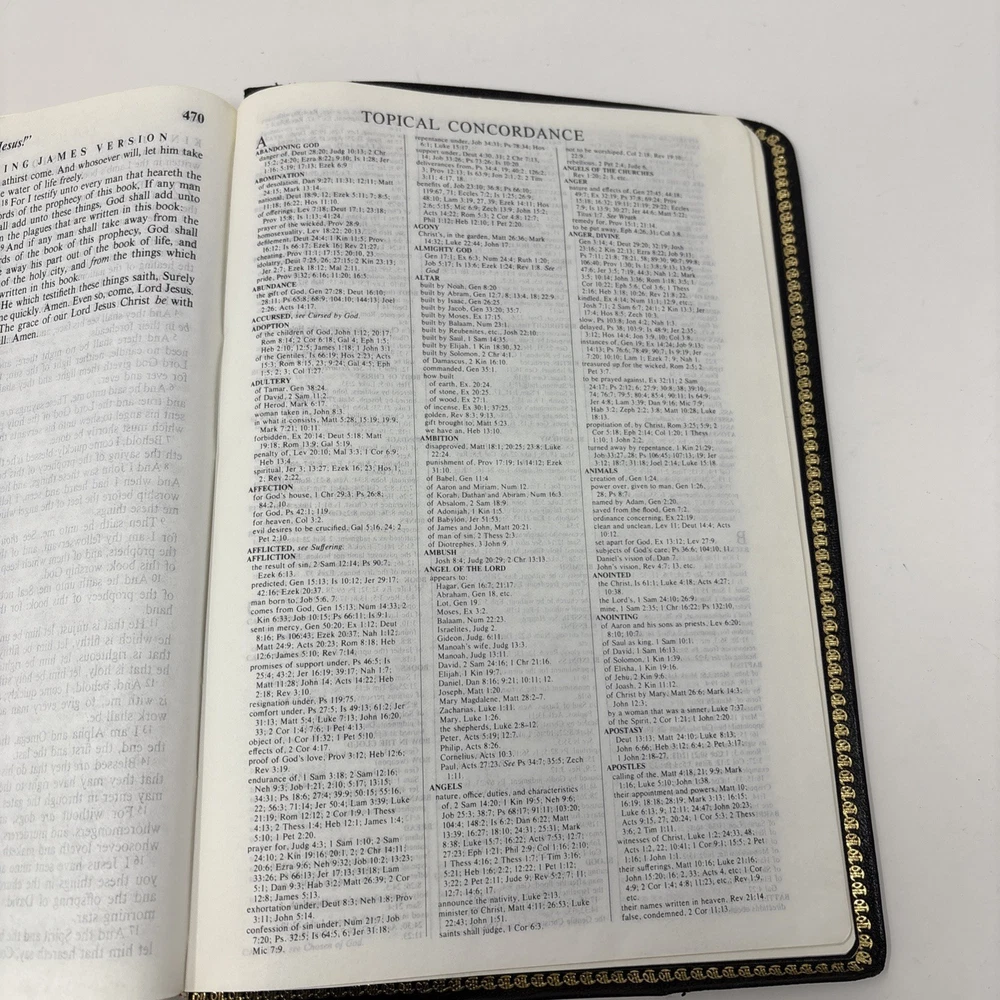 470
esus!"
ING JAMES VERSION
athirst come. And whosoever will, let him take
e water of life freely.
18 For I testify unto every man that heareth the
ords of the prophecy of this book, If any man
all add unto these things, God shall add unto
n the plagues that are written in this book:
9 And if any man shall take away from the
rds of the book of this prophecy, God shall
e away his part out of the book of life, and
of the holy city, and from the things which
written in this book.
He which testifieth these things saith, Surely
ne quickly. Amen. Even so, come, Lord Jesus.
The grace of our Lord Jesus Christ be with
ll. Amen.
TOPICAL CONCORDANCE
A
ABANDONING GOD
danger of, Deut 28:20; Judg 10:13; 2 Chr
15:2; 24:20; Ezra 8:22; 9:10; Is 1:28; Jer
1:16; 5:19; 17:13; Ezek 6:9
ABOMINATION
of desolation, Dan 9:27; 11:31; 12:11; Matt
24:15; Mark 13:14
national, Deut 18:9, 12; Ezek 5:11; 7:8; 8:5;
11:18; 16:22; Hos 11:10
of offerings, Lev 7:18; Deut 17:1; 23:18;
Prov 15:8; Is 1:13; 41:24
prayer of the wicked, Prov 28:9
homosexuality, Lev 18:22; 20:13
defilement, Deut 24:4; 1 Kin 11:5; Prov
16:12; Is 66:17; Ezek 16; Rev 21:27
cheating, Prov 11:1; 17:15; 20:10, 23
idolatry, Deut 7:25, 26; 27:15; 2 Kin 23:13;
Jer 2:7; Ezek 18:12; Mal 2:11
pride, Prov 3:32; 6:16; 11:20; 16:5
ABUNDANCE
the gift of God, Gen 27:28; Deut 16:10;
28:11; Ps 65; 68:9; 104:10; 144:13; Joel
2:26; Acts 14:17
ACCURSED, see Cursed by God
ADOPTION
of the children of God, John 1:12; 20:17;
Rom 8:14; 2 Cor 6:18; Gal 4; Eph 1:5;
Heb 2:10; 12:5; James 1:18; 1 John 3:1
of the Gentiles, Is 66:19; Hos 2:23; Acts
15:3; Rom 8:15, 23; 9:24; Gal 4:5; Eph
1:5; 2; 3; Col 1:27
ADULTERY
of Tamar, Gen 38:24
of David, 2 Sam 11:2
of Herod, Mark 6:17
woman taken in, John 8:3
in what it consists, Matt 5:28; 15:19; 19:9;
Mark 7:21; 10:11
forbidden, Ex 20:14; Deut 5:18; Matt
19:18; Rom 13:9; Gal 5:19
penalty of, Lev 20:10; Mal 3:3; 1 Cor 6:9;
Heb 13:4
spiritual, Jer 3; 13:27; Ezek 16; 23; Hos 1;
2; Rev 2:22
AFFECTION
for God's house, 1 Chr 29:3; Ps 26:8;
84:2, 10
for God, Ps 42:1; 119
for heaven, Col 3:2
evil desires to be crucified, Gal 5:16, 24; 2
Pet 2:10
AFFLICTED, see Suffering
AFFLICTION
the result of sin, 2 Sam 12:14; Ps 90:7;
Ezek 6:13
predicted, Gen 15:13; Is 10:12; Jer 29:17;
42:16; Ezek 20:37
man born to, Job 5:6, 7
comes from God, Gen 15:13; Num 14:33; 2
Kin 6:33; Job 10:15; Ps 66:11; Is 9:1
sent in mercy, Gen 50:20; Ex 1:12; Deut
8:16; Ps 106:43; Ezek 20:37; Nah 1:12;
Matt 24:9; Acts 20:23; Rom 8:18; Heb
12:6; James 5:10; Rev 7:14
promises of support under, Ps 46:5; Is
25:4; 43:2; Jer 16:19; 39:17; Nah 1:7;
Matt 11:28; John 14; Acts 14:22; Heb
2:18; Rev 3:10
resignation under, Ps 119:75
comfort under, Ps 27:5; Is 49:13; 61:2; Jer
31:13; Matt 5:4; Luke 7:13; John 16:20,
33; 2 Cor 1:4; 7:6; 1 Pet 4:13
object of, 1 Cor 11:32; 1 Pet 5:10
effects of, 2 Cor 4:17
proof of God's love, Prov 3:12; Heb 12:6;
Rev 3:19
endurance of, 1 Sam 3:18; 2 Sam 12:16;
Neh 9:3; Job 1:21; 2:10; 5:17; 13:15;
34:31; Ps 18:6; 27:4; 39:9; 50:15; 55:16,
22; 56:3; 71:14; Jer 50:4; Lam 3:39; Luke
21:19; Rom 12:12; 2 Cor 1:9; 1 Thess
4:13; 2 Thess 1:4; Heb 12:1; James 1:4;
5:10; 1 Pet 2:20
prayer for, Judg 4:3; 1 Sam 1:10; 2 Sam
24:10; 2 Kin 19:16; 20:1, 2; 2 Chr 14:11;
20:6; Ezra 9:6; Neh 9:32; Job 10:2; 13:23;
33:26; Ps 66:13; Jer 17:13; 31:18; Lam
5:1; Dan 9:3; Hab 3:2; Matt 26:39; 2 Cor
12:8; James 5:13
exhortation under, Deut 8:3; Neh 1:8; Prov
3:11; John 5:14
confession of sin under, Num 21:7; Job
7:20; Ps. 32:5; Is 64:5, 6; Jer 31:18;
Mic 7:9
repentance under, Job 34:31; Ps 78:34; Hos
6:1; Luke 15:17
support under, Deut 4:30, 31; 2 Chr 7:13,
14; Job 33:26; Ps 73:26; Is 10:20
benefits of, Job 23:10; 36:8; Ps 66:10;
119:67, 71; Eccles 7:2; Is 1:25; 26:9;
48:10; Lam 3:19, 27, 39; Ezek 14:11; Hos
2:6; 5:15; Mic 6:9; Zech 13:9; John 15:2;
Acts 14:22; Rom 5:3; 2 Cor 4:8; 12:7;
Phil 1:12; Heb 12:10; 1 Pet 2:20
AGONY
Christ's, in the garden, Matt 26:36; Mark
14:32; Luke 22:44; John 17
ALMIGHTY GOD
Gen 17:1; Ex 6:3; Num 24:4; Ruth 1:20;
Job 5:17; Is 13:6; Ezek 1:24; Rev 1:8. See
God
ALTAR
built by Noah, Gen 8:20
built by Abram, Gen 12:7, 8; 13:4, 18; 22:9
built by Isaac, Gen 26:25
built by Jacob, Gen 33:20; 35:7
built by Moses, Ex 17:15
built by Balaam, Num 23:1
built by Reubenites, etc., Josh 22:10
built by Saul, 1 Sam 14:35
built by Elijah, 1 Kin 18:30, 32
built by Solomon, 2 Chr 4:1
of Damascus, 2 Kin 16:10
commanded, Gen 35:1
how built
of earth, Ex. 20:24
of stone, Ex 20:25
of wood, Ex 27:1
of incense, Ex 30:1; 37:25
golden, Rev 8:3; 9:13
gift brought to, Matt 5:23
we have an, Heb 13:10
AMBITION
disapproved, Matt 18:1; 20:25; 23:8; Luke
22:24
punishment of, Prov 17:19; Is 14:12; Ezek
31:10
of Babel, Gen 11:4
of Aaron and Miriam, Num 12
of Korah, Dathan and Abiram, Num 16:3
of Absalom, 2 Sam 18:9
of Adonijah, 1 Kin 1:5
of Babylon, Jer 51:53
of James and John, Matt 20:21
of man of sin, 2 Thess 2:3
of Diotrephes, 3 John 9
AMBUSH
Josh 8:4; Judg 20:29; 2 Chr 13:13
ANGEL OF THE LORD
appears to:
Hagar, Gen 16:7; 21:17
Abraham, Gen 18, etc.
Lot, Gen 19
Moses, Ex 3:2
Balaam, Num 22:23
Israelites, Judg 2
Gideon, Judg. 6:11
Manoah's wife, Judg 13:3
Manoah, Judg 13:11
David, 2 Sam 24:16; 1 Chr 21:16
Elijah, 1 Kin 19:7
Daniel, Dan 8:16; 9:21; 10:11; 12
Joseph, Matt 1:20
Mary Magdalene, Matt 28:2–7
Zacharias, Luke 1:11
Mary, Luke 1:26
the shepherds, Luke 2:8–12
Peter, Acts 5:19; 12:7
Philip, Acts 8:26
Cornelius, Acts 10:3
Paul, Acts 27:23. See Ps 34:7; 35:5; Zech
1:11
ANGELS
nature, office, duties, and characteristics
of, 2 Sam 14:20; 1 Kin 19:5; Neh 9:6;
Job 25:3; 38:7; Ps 68:17; 91:11; 103:20;
104:4; 148:2; Is 6:2; Dan 6:22; Matt
13:39; 16:27; 18:10; 24:31; 25:31; Mark
8:38; Luke 15:7; 16:22; Acts 7:53; 12:7;
27:23; Eph 1:21; Phil 2:9; Col 1:16; 2:10;
1 Thess 4:16; 2 Thess 1:7; 1 Tim 3:16;
5:21; Heb 1:6; 2:2; 12:22; 1 Pet 1:12;
3:22; 2 Pet 2:11; Jude 9; Rev 5:2; 7; 11;
12:7; 14:6; 17
announce the nativity, Luke 2:13
minister to Christ, Matt 4:11; 26:53; Luke
22:43; John 1:51
saints shall judge, 1 Cor 6:3
not to be worshiped, Col 2:18; Rev 19:10;
22:9
rebellious, 2 Pet 2:4; Jude 6
ANGELS OF THE CHURCHES
ANGER
nature and effects of, Gen 27:45; 44:18;
remedy for, Prov 15:1; 21:14
to be put away, Eph 4:26, 31; Col 3:8
ANGER, DIVINE
slow, Ps 103:8; Jon 4:2; Nah 1:3
treasured up for the wicked, Rom 2:5; 2
Pet 3:7
to be prayed against, Ex 32:11; 2 Sam
18:13
propitiation of, by Christ, Rom 3:25; 5:9; 2
Cor 5:18; Eph 2:14; Col 1:20; 1 Thess
1:10; 1 John 2:2
turned away by repentance, 1 Kin 21:29;
Job 33:27, 28; Ps 106:45; 107:13, 19; Jer
3:12; 18:7; 31:18; Joel 2:14; Luke 15:18
ANIMALS
creation of, Gen 1:24
power over, given to man, Gen 1:26,
28; Ps 8:7
named by Adam, Gen 2:20
saved from the flood, Gen 7:2
ordinance concerning, Ex 22:19
clean and unclean, Lev 11; Deut 14:4; Acts
10:12
set apart for God, Ex 13:12; Lev 27:9
subjects of God's care, Ps 36:6; 104:10, 11
Daniel's vision of, Dan 7
John's vision, Rev 4:7; 13, etc.
ANOINTED
the Christ, Is 61:1; Luke 4:18; Acts 4:27;
10:38
the Lord's, 1 Sam 24:10; 26:9
mine, 1 Sam 2:35; 1 Chr 16:22; Ps 132:10
ANOINTING
of Aaron and his sons as priests, Lev 6:20;
8:10; 10:7
of Saul as king, 1 Sam 10:1
of David, 1 Sam 16:13
of Solomon, 1 Kin 1:39
of Elisha, 1 Kin 19:16
of Jehu, 2 Kin 9:6
of Joash, 2 Kin 11:12
of Christ by Mary, Matt 26:6; Mark 14:3;
John 12:3;
by a woman that was a sinner, Luke 7:37
of the Spirit, 2 Cor 1:21; 1 John 2:20
APOSTASY
Deut 13:13; Matt 24:10; Luke 8:13;
John 6:66; Heb 3:12; 6:4; 2 Pet 3:17;
1 John 2:18–27
APOSTLES
calling of the, Matt 4:18, 21; 9:9; Mark
1:16; Luke 5:10; John 1:38
their appointment and powers, Matt 10;
16:19; 18:18; 28:19; Mark 3:13; 16:15;
Luke 6:13; 9; 12:11; 24:47; John 20:23;
Acts 9:15, 27; 20:24; 1 Cor 5:3; 2 Thess
3:6; 2 Tim 1:11
witnesses of Christ, Luke 1:2; 24:33, 48;
Acts 1:2, 22; 10:41; 1 Cor 9:1; 15:5; 2 Pet
1:16; 1 John 1:1
their sufferings, Matt 10:16; Luke 21:16;
John 15:20; 16:2, 33; Acts 4, etc.; 1 Cor
4:9; 2 Cor 1:4; 4:8; 11:23, etc.; Rev 1:9,
etc.
their names written in heaven, Rev 21:14
false, condemned, 2 Cor 11:13